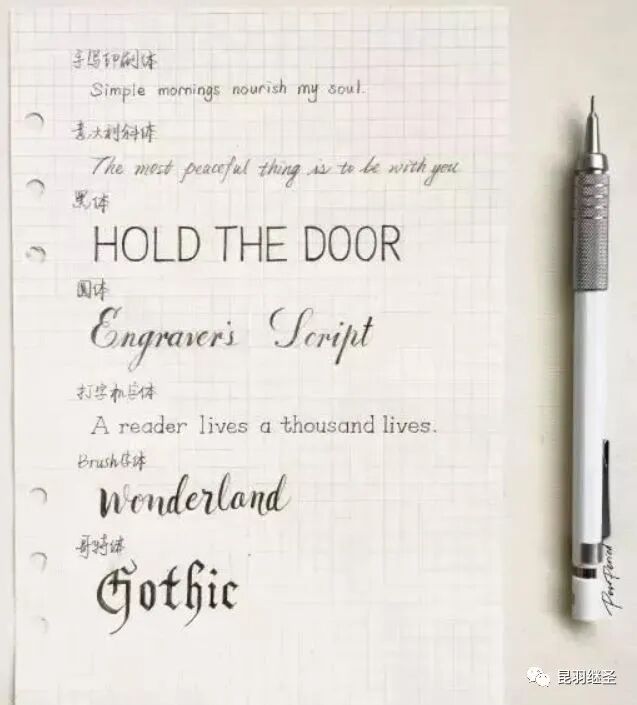 手写印刷体
Simple mornings nourish my soul.
意大利斜体
The most peaceful thing is to be with you
黑体
HOLD THE DOOR
圆体
Engraver's Script
打字机字体
A reader lives a thousand lives.
Brush字体
wonderland
哥特体
Gothic
PenPencil
昆羽继圣